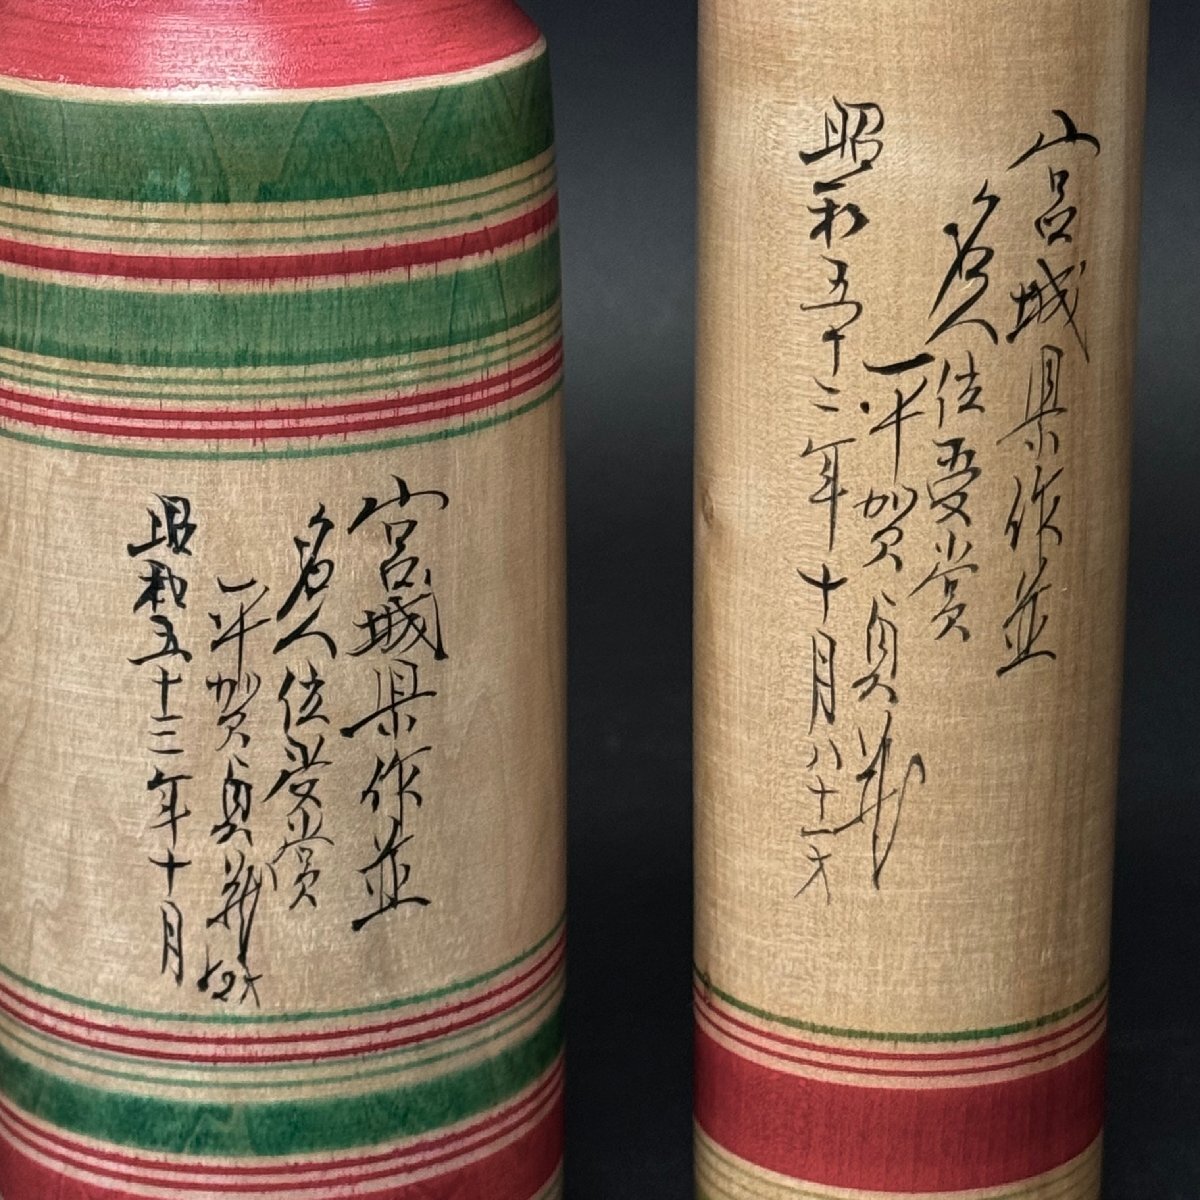 宮城県作並
名人位受賞
平賀貞蔵
昭和五十二年十月八十一才
宮城県作並
名人位受賞
平賀貞蔵 82才
昭和五十三年十月